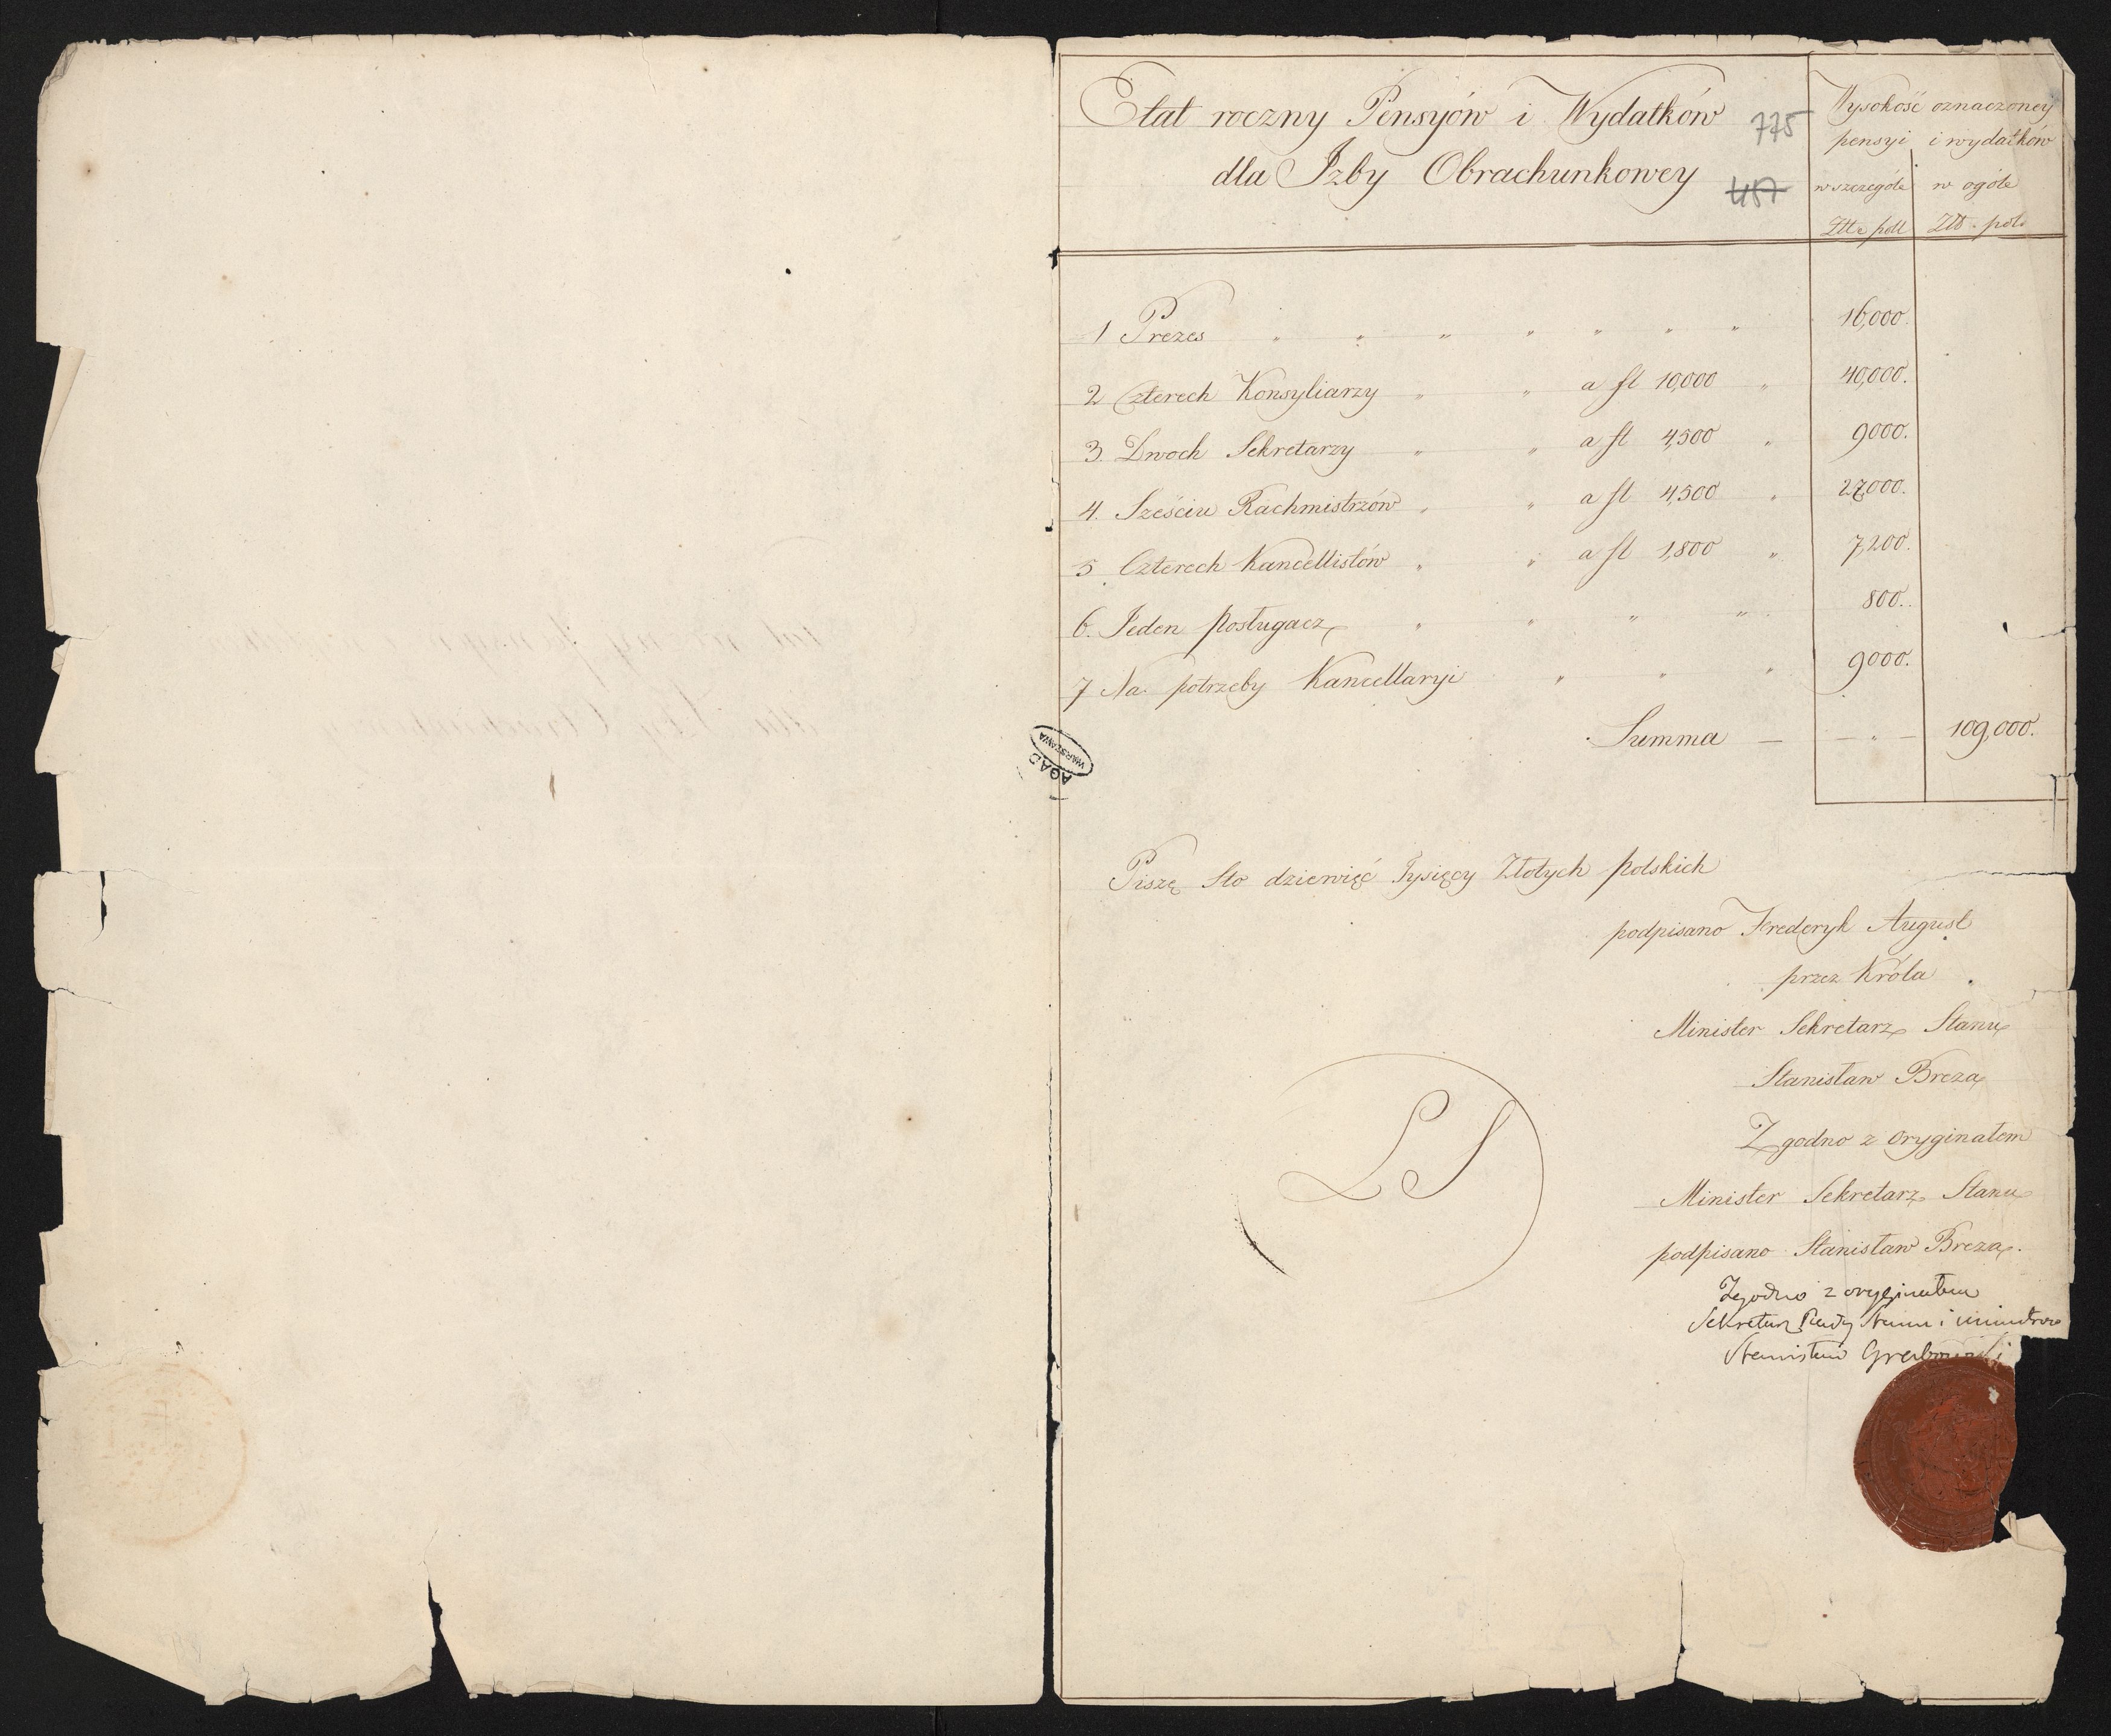 Etat roczny Pensyów i Wydatków
dla Izby Obrachunkowey
775
457
Wysokość oznaczoney
pensyi i wydatków
w szczególe w ogóle
Złł. poll Złł. pol.
1 Prezes " " " " " " " 16,000.
2 Czterech Konsyliarzy " " a fl 10,000 " 40,000.
3. Dwoch Sekretarzy " " a fl 4,500 " 9000.
4. Sześciu Rachmistrzów " " a fl 4,500 " 27,000.
5. Czterech Kancellistów " " a fl 1,800 " 7,200.
6. Jeden posługacz " " " " 800.
7 Na potrzeby Kancellaryi " " " 9000.
Summa — — " — 109,000.
AGAD
WARSZAWA
Piszę Sto dziewięć Tysięcy Złotych polskich
podpisano Frederyk August
przez Króla
Minister Sekretarz Stanu
Stanisław Breza
L S
Zgodno z oryginałem
Minister Sekretarz Stanu
podpisano Stanisław Breza.
Zgodno z oryginałem
Sekretarz Rady Stanu i ministrów
Stanisław Grabowski